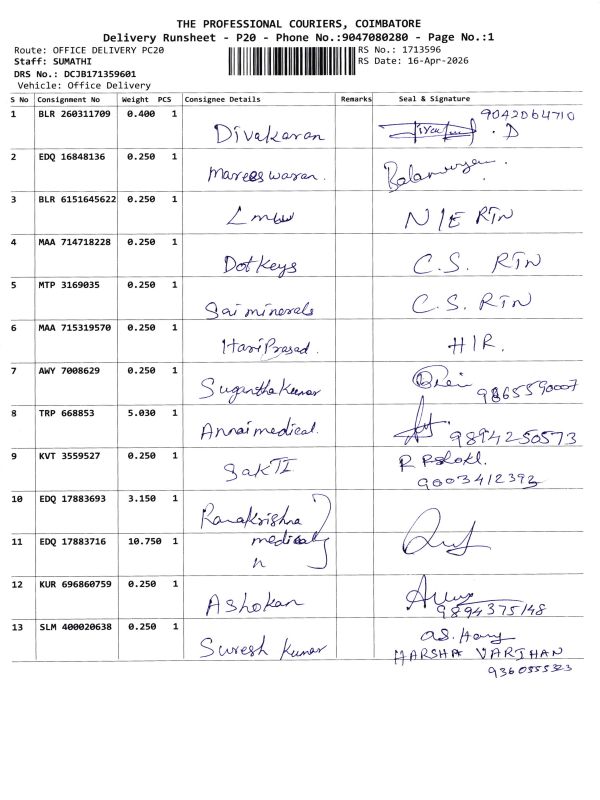 THE PROFESSIONAL COURIERS, COIMBATORE
Delivery Runsheet - P20 - Phone No.:9047080280 - Page No.:1
Route: OFFICE DELIVERY PC20 RS No.: 1713596
Staff: SUMATHI RS Date: 16-Apr-2026
DRS No.: DCJB171359601
Vehicle: Office Delivery
S No Consignment No Weight PCS Consignee Details Remarks Seal & Signature
1 BLR 260311709 0.400 1 Divakaran 9042064710 D
2 EDQ 16848136 0.250 1 Mareeswaran. Balamurugan.
3 BLR 6151645622 0.250 1 N/E RTN
4 MAA 714718228 0.250 1 DotKeys C.S. RTN
5 MTP 3169035 0.250 1 Sai minerals C.S. RTN
6 MAA 715319570 0.250 1 HariPrasad. HIR.
7 AWY 7008629 0.250 1 Sugantha Kumar 9865590007
8 TRP 668853 5.030 1 Annai medical. 9894250573
9 KVT 3559527 0.250 1 SakTI 9003412393
10 EDQ 17883693 3.150 1 Ramakrishna
11 EDQ 17883716 10.750 1 medically
12 KUR 696860759 0.250 1 Ashokan 9894375148
13 SLM 400020638 0.250 1 Suresh Kumar
HARSHA VARTHAN
9360555323